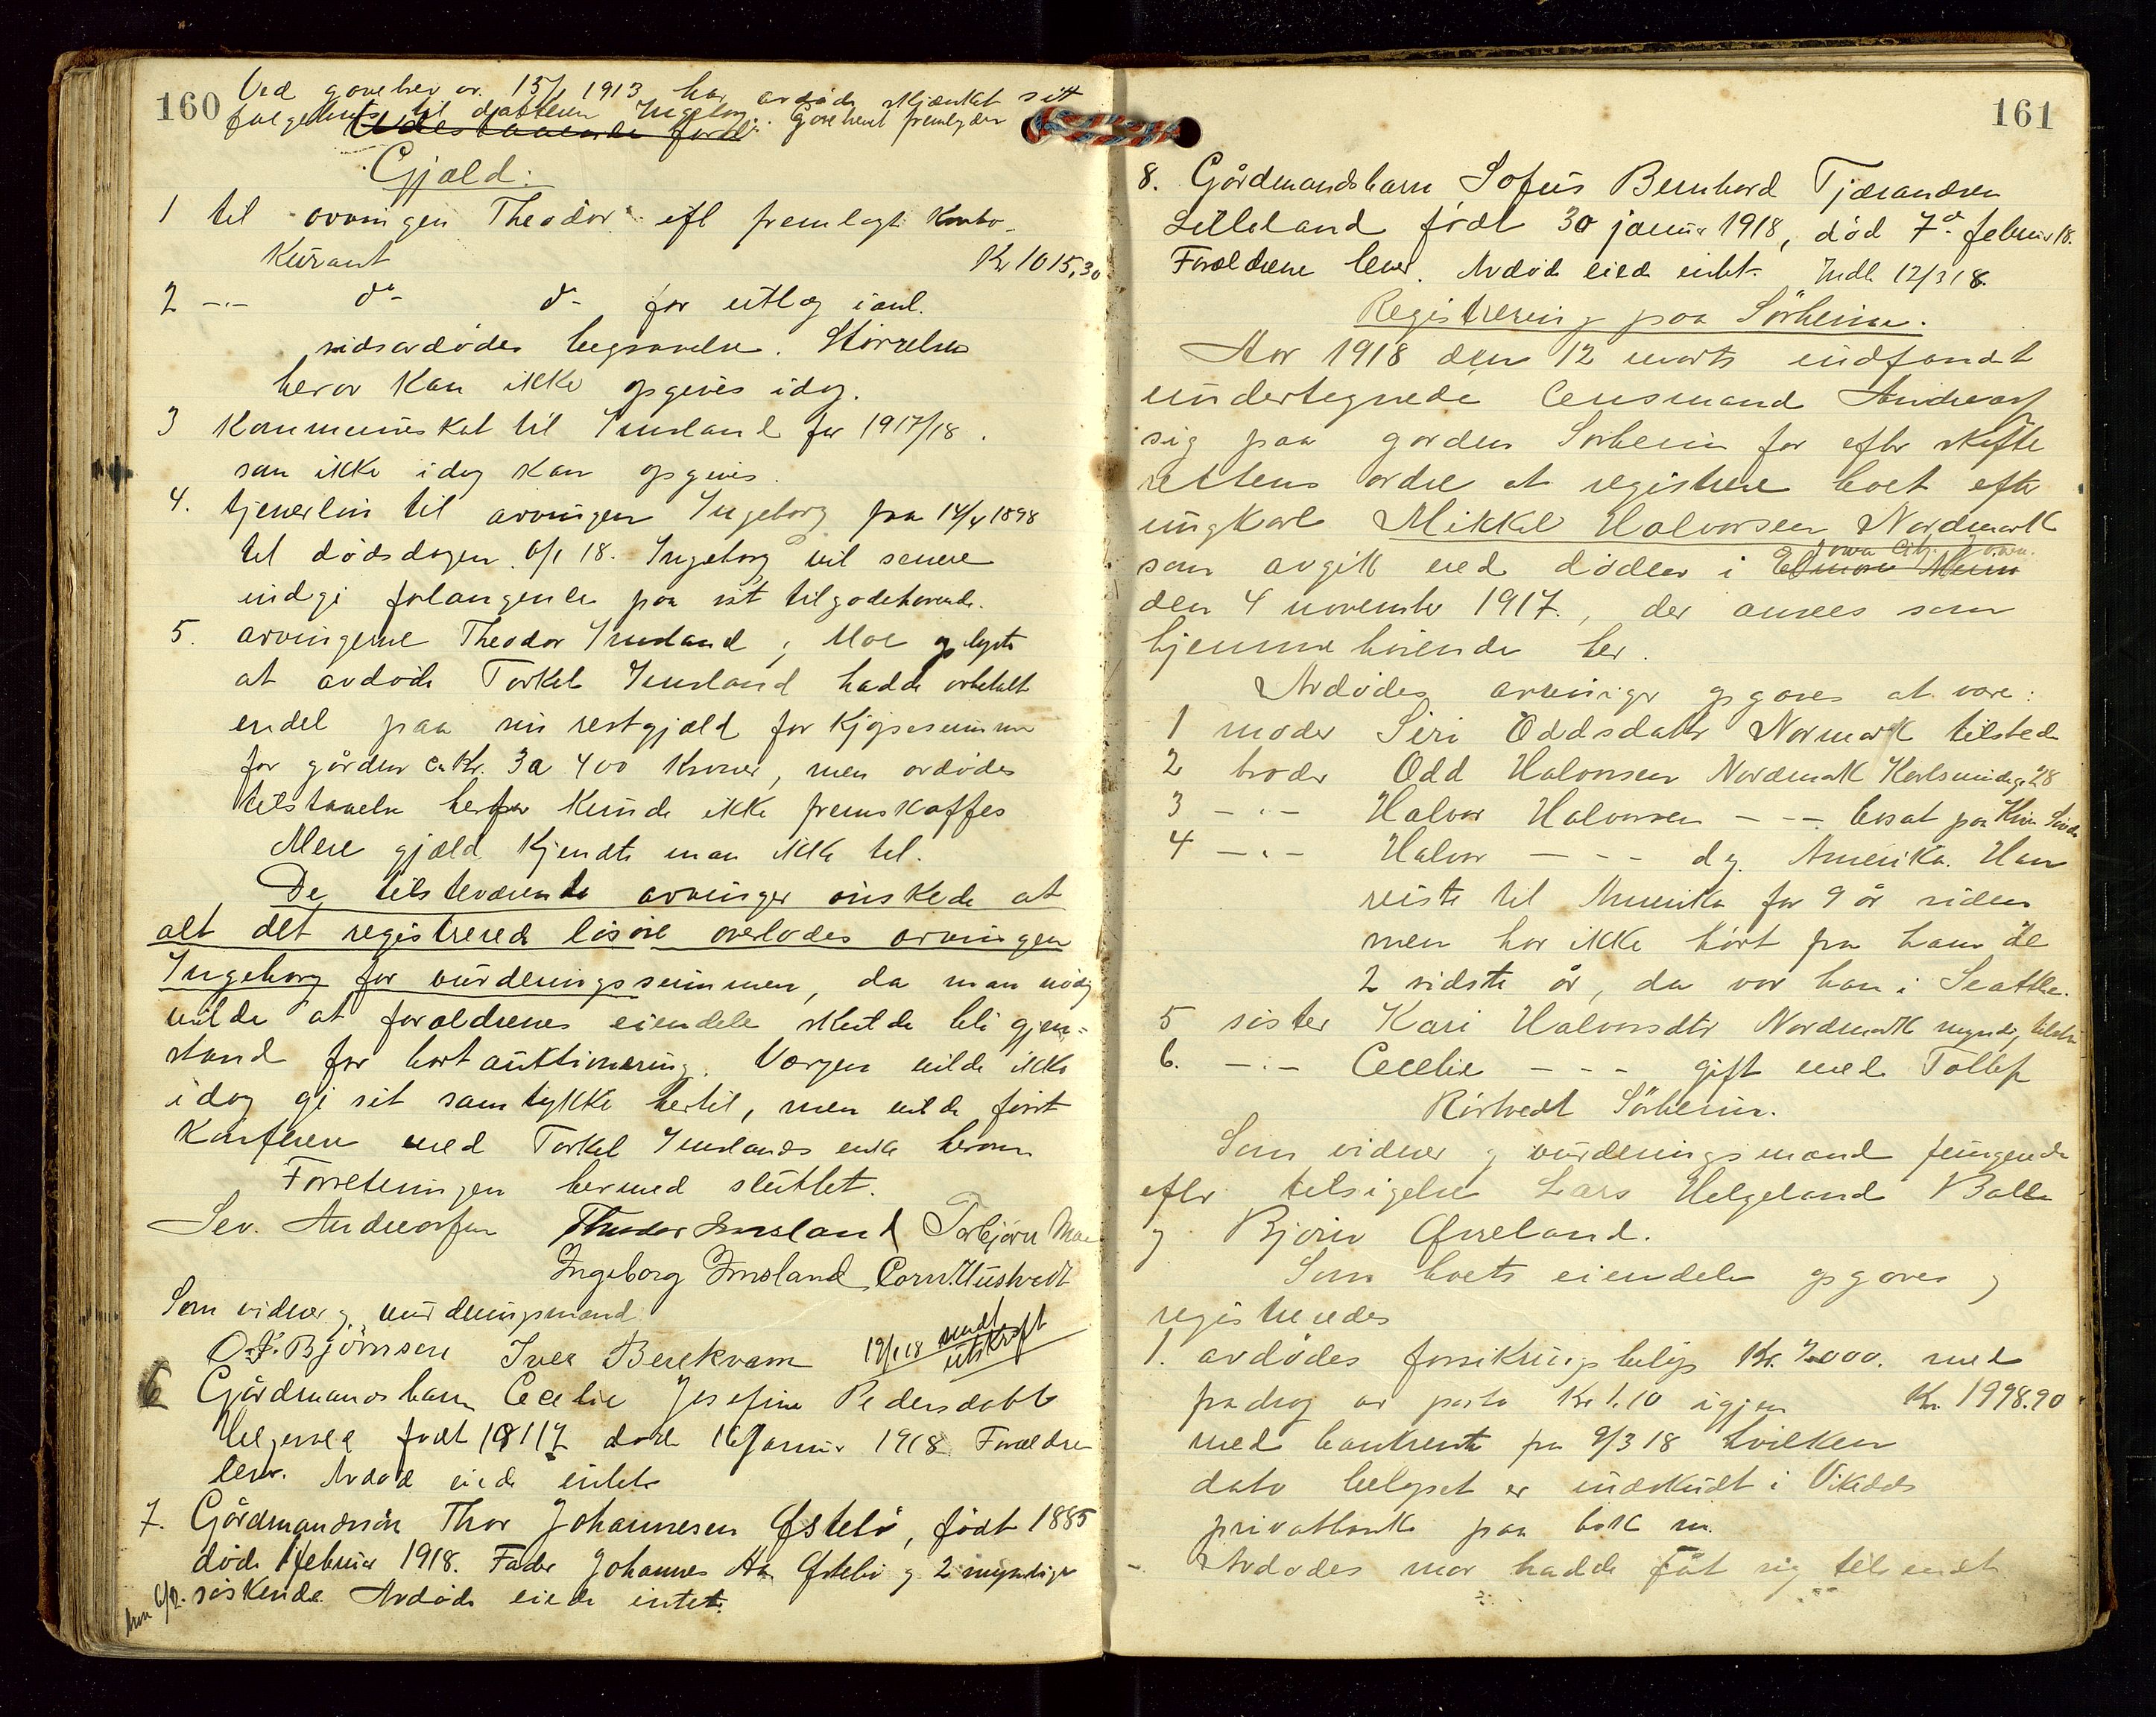 160
Ved gavebrev av 15/1 1913 har avdøde skjænket sit
til datteren Ingeborg. Gavebrevet fremlydes
Udestaaende ford.
Gjæld:
1 til arvingen Theodor efl fremlagt Konto-
Kurant Kr 1015,30
2 -"- do- do- for utlæg i anl.
sidsavdødes begravelse. Størrelsen
herav kan ikke opgives idag.
3 Kommuneskat til Imsland for 1917/18.
som ikke idag kan opgives.
4. tjenerløn til arvingen Ingeborg fra 14/4 1898
til dødsdagen 6/1 18. Ingeborg vil senere
indgi forlangende paa sit tilgodehavende.
5. arvingerne Theodor Imsland, Moe oplyste
at avdøde Torkel Imsland hadde avbetalt
endel paa sin restgjæld for Kjøpesummen
for gården ca Kr. 3 a 400 Kroner, men avdødes
tilstaaelse herfor kunde ikke fremskaffes
Mere gjæld kjendte man ikke til.
De tilsteværende arvinger ønskede at
alt det registrerede løsøre overlodes arvingen
Ingeborg for vurderingssummen, da man nødig
vilde at forældrenes eiendele skulde bli gjen-
stand for bortauktionering. Vergen vilde ikke
idag gi sit samtykke hertil, men vilde først
Konferere med Torkel Imslands enke herom
Forretningen hermed sluttet.
Sev. Andreassen Theodor Imsland Torbjørn Moe
Ingeborg Imsland Corn. Hustvedt
Som vidner og vurderingsmænd
O. J. Bjørnsen Iver Berekvam 19/1 18 sendt utskrift
6 Gårdmandsbarn Cecelie Josefine Pedersdatter
født 1917 død 16 Januar 1918 Forældre
lever. Avdød eiede intet
7. Gårdmandssøn Thor Johannesen Østebø, født 1885
døde 1 februar 1918. Fader Johannes Aa. Østebø og 2 myndige
søskende. Avdøde eiede intet.
6/2.
161
8. Gårdmandsbarn Sofus Bernhard Tjærandsen
Lilleland født 30 januar 1918, død 7de februar 18.
Forældrene lever. Avdøde eiede intet. Indb 12/3 18.
Registrering paa Sørheim.
Aar 1918 den 12 marts indfandt
undertegnede lensmand Andreassen
sig paa garden Sørheim for efter skifte
rettens ordre at registrere boet efter
ungkarl Mikkel Halvorsen Nordmark
Iowa City. Iowa.
som avgik ved døden i Elmore Minn
den 4 november 1917., der ansees som
hjemmehørende her.
Avdødes arvinger opgaves at være:
1 moder Siri Oddsdatter Normark tilstede
2 broder Odd Halvorsen Nordmark Karlsmindeg. 28
3 -"- Halvor Halvorsen - - - bosat paa
4 -"- Halvor - - - dg. Amerika. Han
reiste til Amerika for 9 år siden
men har ikke hørt fra ham de
2 sidste år, da var han i Seattle.
5 søster Kari Halvorsdtr Nordmark myndig, tilstede
6. -"- Cecelie - - - gift med Tollef
Rørtvedt Sørheim.
Som vidner og vurderingsmænd fungerede
efter tilsigelse Lars Helgeland
og Bjørn Ørreland.
Som boets eiendele opgaves og
registreredes
1. avdødes forsikringsbeløp Kr. 2000. med
fradrag av porto Kr 1.10 igjen Kr. 1998.90
med bankrente fra 9/3 18 hvilken
dato beløpet er indskudt i Vikedals
privatbank paa bok nr.
- Avdødes mor hadde fåt sig tilsendt